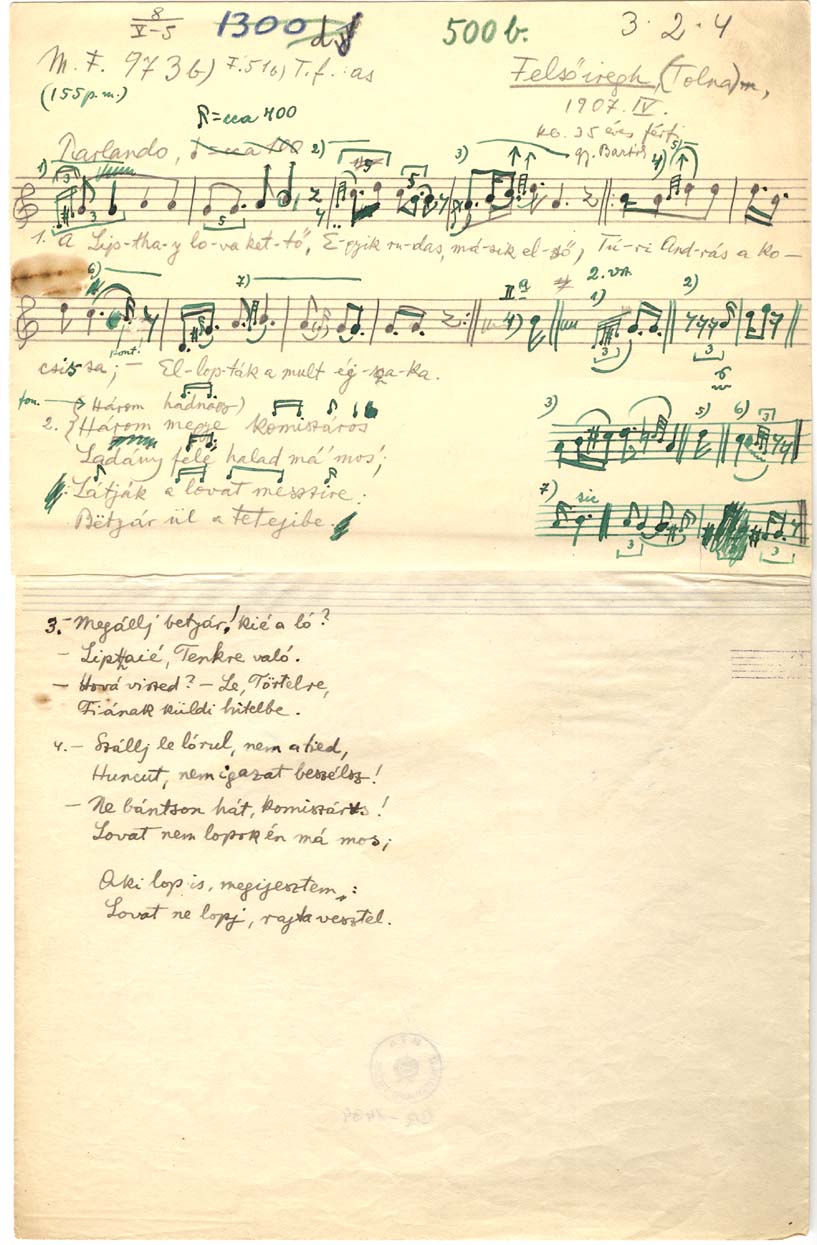 8
V-5
1300
500 b.
3·2·4
M. F. 973 b) F.51b) T.f.: as
(155 p.m.)
Felsőiregh, (Tolna) m,
1907. IV.
kb. 35 éves férfi
gy. Bartók
Parlando,
1. A Lip-tha-y lo-va ket-tő, E-gyik ru-das, má-sik el-ső, Tú-ri And-rás a ko-
csis-sa; - El-lop-ták a mult éj-sza-ka.
(Három hadnagy)
2. Három megye komiszáros
Ladány felé halad má' mos';
Látják a lovat messzire:
Bëtyár ül a tetejibe.
2. vsz.
1) 2)
3) 5) 6)
7) sic
3. - Megállj betyár! kié a ló?
- Lipthaié, Tenkre való.
- Hová viszed? - Le, Törtelre,
Fiának küldi hitelbe.
4. - Szállj le lórul, nem a tied,
Huncut, nem igazat beszélsz!
- Ne bántson hát, komiszáros!
Lovat nem lopok én má mos;
Aki lop is, megijesztem:
Lovat ne lopj, rajta vesztel.